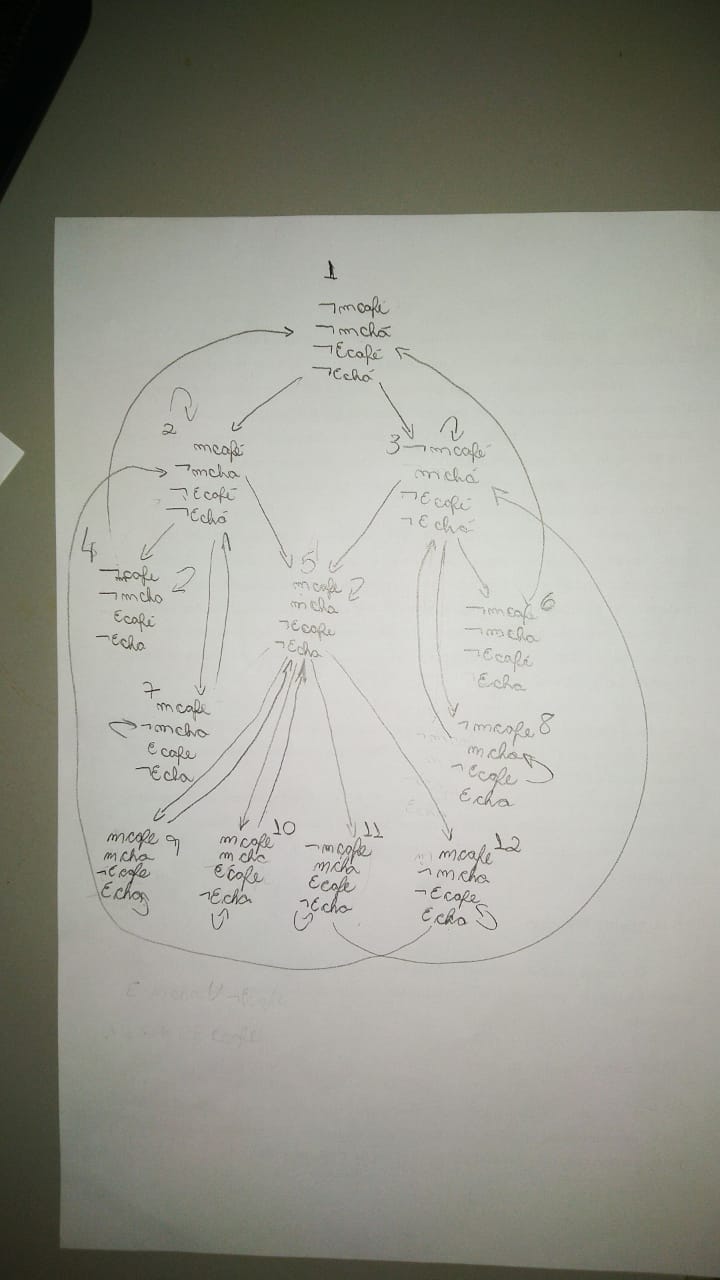 1
¬mcafé
¬mchá
¬Ecafé
¬Echá
2
mcafé
¬mcha
¬Ecafé
¬Echá
3 ¬mcafé
mchá
¬Ecafé
¬Echá
4
¬mcha
Ecafé
¬Echa
5
mcafe
mcha
¬Ecafe
¬Echa
¬mcafe 6
¬mcha
¬Ecafé
Echa
7
mcafe
¬mcha
Ecafe
¬Echa
¬mcafe 8
mcha
¬Ecafe
Echa
mcafe 9
mcha
¬Ecafe
Echa
10
mcafe
mcha
Ecafe
¬Echa
11
¬mcafe
mcha
Ecafe
¬Echa
12
mcafe
¬mcha
¬Ecafe
Echa